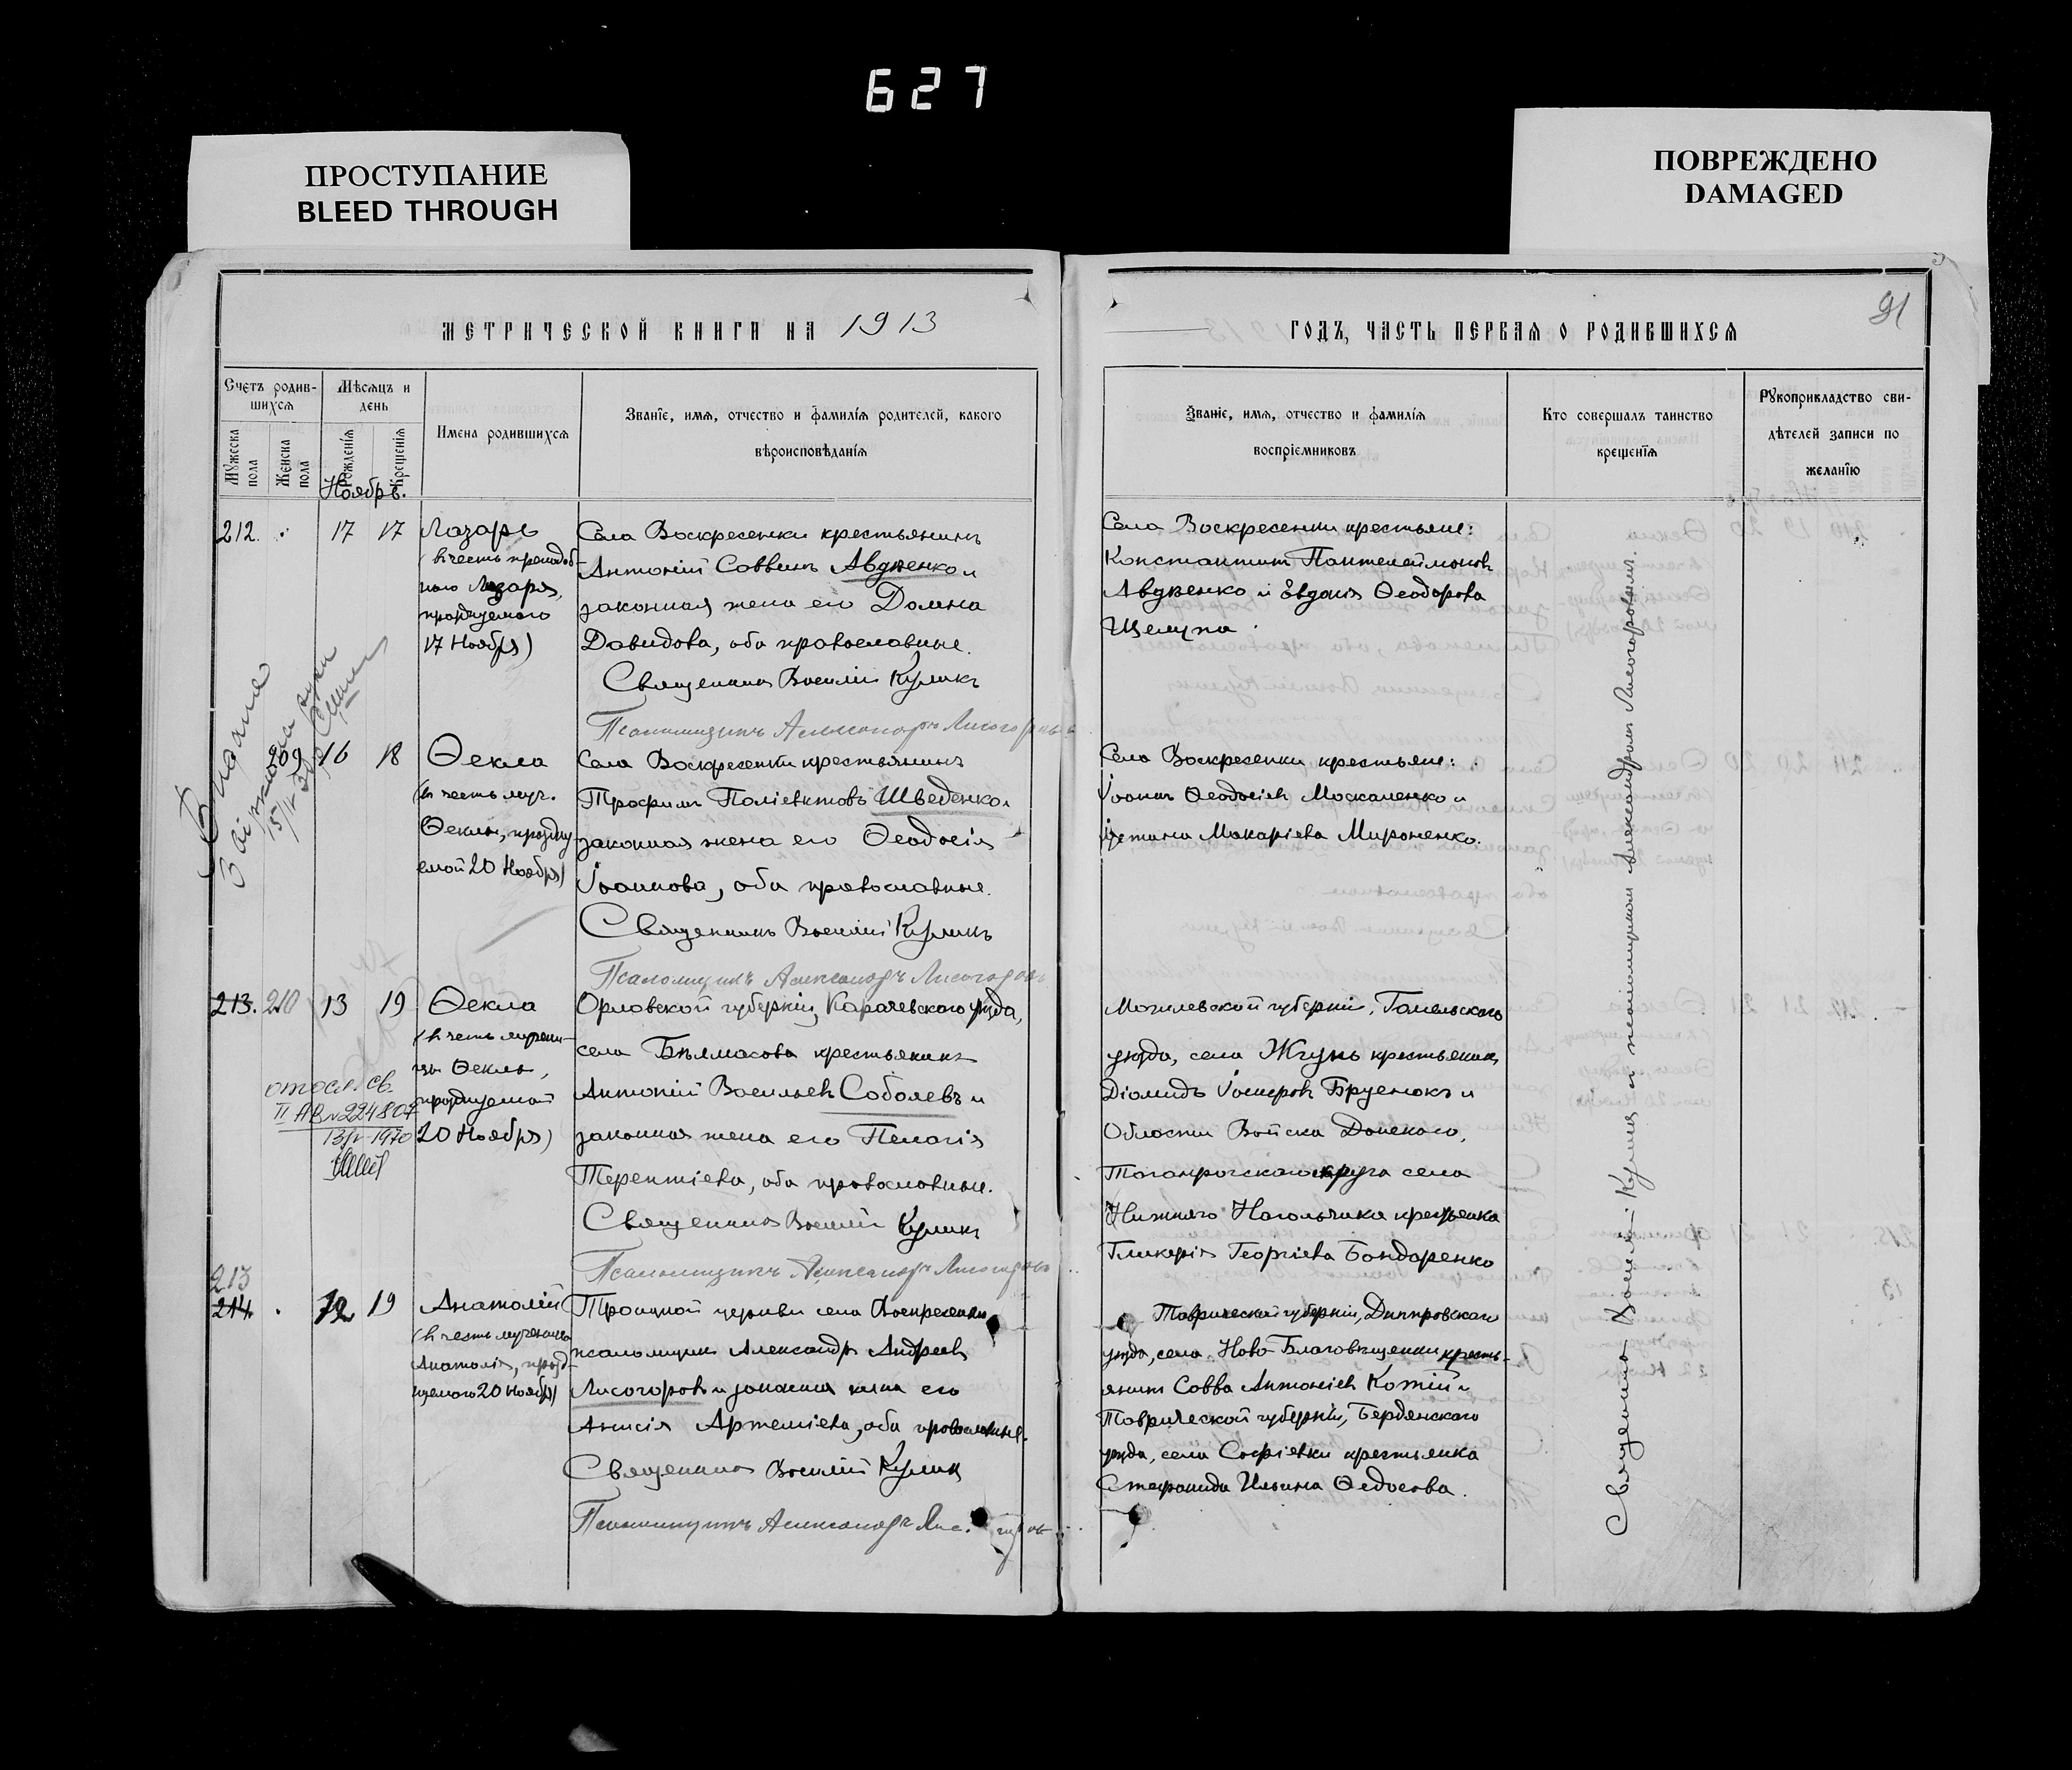 627
ПРОСТУПАНИЕ
BLEED THROUGH
ПОВРЕЖДЕНО
DAMAGED
91
МЕТРИЧЕСКОЙ КНИГИ НА 1913
ГОДЪ, ЧАСТЬ ПЕРВАЯ О РОДИВШИХСЯ
Счетъ родив-
шихся
Мужеска пола
Женска пола
Мѣсяцъ и
день
Рожденія
Крещенія
Имена родившихся
Званіе, имя, отчество и фамилія родителей, какого
вѣроисповѣданія
Званіе, имя, отчество и фамилія
воспріемниковъ
Кто совершалъ таинство
крещенія
Рукоприкладство сви-
дѣтелей записи по
желанію
Ноябрь.
212. 17 17
Лазарь
(въ честь преподоб-
наго Лазаря,
празднуемаго
17 Ноября)
Села Воскресенки крестьянинъ
Антоній Саввинъ Авдѣенко и
законная жена его Домна
Давидова, оба православные.
Священникъ Василій Куликъ
Псаломщикъ Александръ Лисогоровъ
Села Воскресенки крестьяне:
Константинъ Пантелеймоновъ
Авдѣенко и Евдокія Ѳеодорова
Щелупа.
Выдано
209 16 18
Ѳекла
(въ честь муч.
Ѳеклы, празднуемой 20 Ноября)
Села Воскресенки крестьянинъ
Трофимъ Поліевктовъ Шведенко и
законная жена его Ѳеодосія
Іоаннова, оба православные.
Священникъ Василій Куликъ
Псаломщикъ Александръ Лисогоровъ
Села Воскресенки крестьяне:
Іоаннъ Ѳеодосіевъ Москаленко и
Устина Макаріева Мироненко.
213. 210 13 19
Ѳекла
(въ честь мучени-
цы Ѳеклы,
празднуемой
20 Ноября)
II АВ № 224807
1970
Орловской губерніи, Карачевскаго уѣзда,
села Бѣлмасова крестьянинъ
Антоній Васильевъ Соболевъ и
законная жена его Пелагія
Терентіева, оба православные.
Священникъ Василій Куликъ
Псаломщикъ Александръ Лисогоровъ
Могилевской губерніи, Гомельскаго
уѣзда, села Жгунь крестьянинъ
Діомидъ Іосифовъ и
Области Войска Донскаго,
Таганрогскаго округа села
Нижняго Нагольчика крестьянка
Гликерія Георгіева Бондаренко
213
214. 12 19
Анатолій
(въ честь мученика
Анатолія, празд-
нуемаго 20 Ноября)
Троицкой церкви села Воскресенки
псаломщикъ Александръ Андреевъ
Лисогоровъ и законная жена его
Анисія Артеміева, оба православные.
Священникъ Василій Куликъ
Псаломщикъ Александръ Лисогоровъ
Таврической губерніи, Днѣпровскаго
уѣзда, села Ново-Благовѣщенки кресть-
янинъ Савва Антоніевъ Котій и
Таврической губерніи, Бердянскаго
уѣзда, села Софіевки крестьянка
Стефанида Ильина Ѳедосова.
Священникъ Василій Куликъ и псаломщикъ Александръ Лисогоровъ.